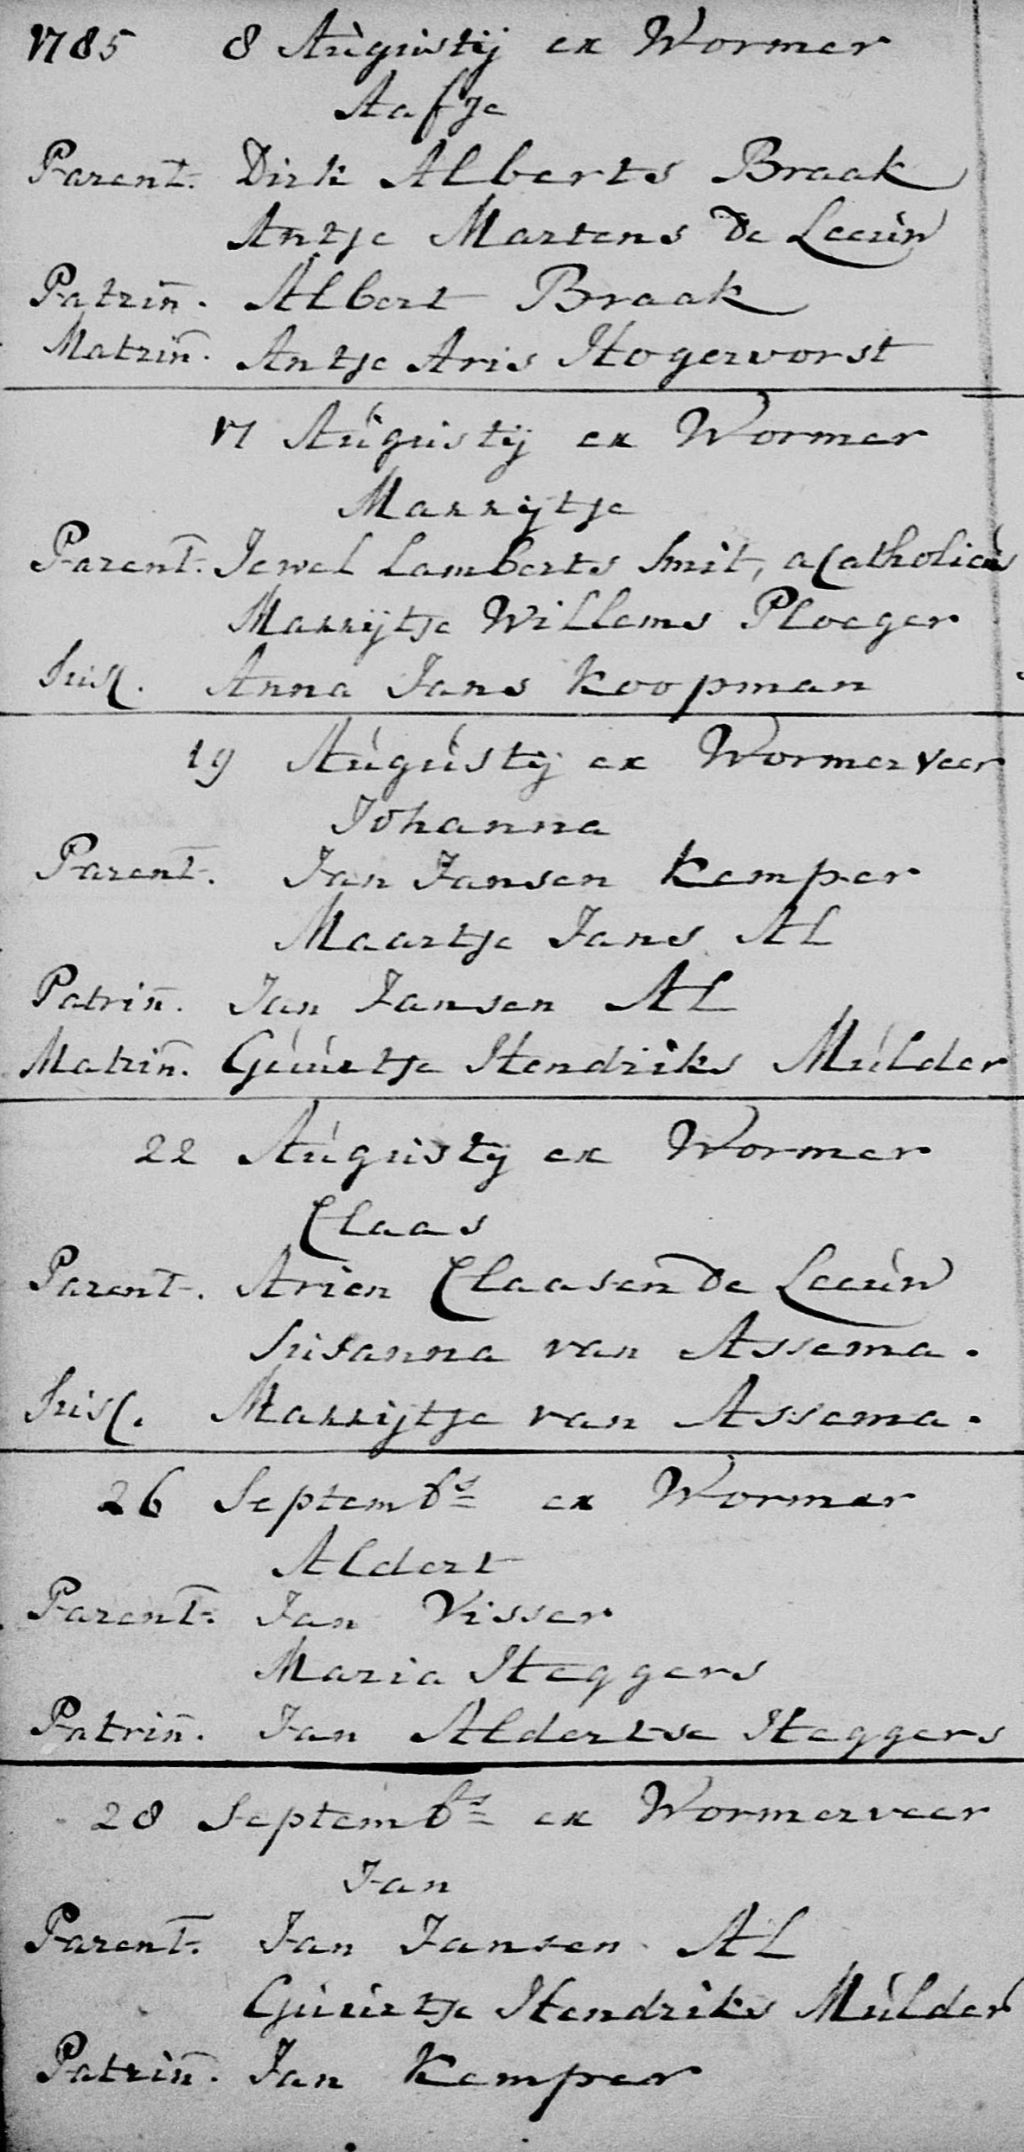 1785 8 Augustij ex Wormer
Aafje
Parent. Dirk Alberts Braak
Antje Martens De Leeuw
Patrin̄. Albert Braak
Matrin̄. Antje Aris Hogervorst
17 Augustij ex Wormer
Marrijtje
Parent. Jewel Lamberts Smit, aCatholicus
Marrijtje Willems Ploeger
Susc. Anna Jans Koopman
19 Augustij ex Wormerveer
Johanna
Parent. Jan Jansen Kemper
Maartje Jans Al
Patrin̄. Jan Jansen Al
Matrin̄. Guurtje Hendriks Mulder
22 Augustij ex Wormer
Claas
Parent. Arien Claasen De Leeuw
Susanna van Assema.
Susc. Marrijtje van Assema.
26 Septembs ex Wormer
Aldert
Parent. Jan Visser
Maria Heggers
Patrin̄. Jan Aldertse Heggers
28 Septembs ex Wormerveer
Jan
Parent. Jan Jansen Al
Guurtje Hendriks Mulder
Patrin̄. Jan Kemper